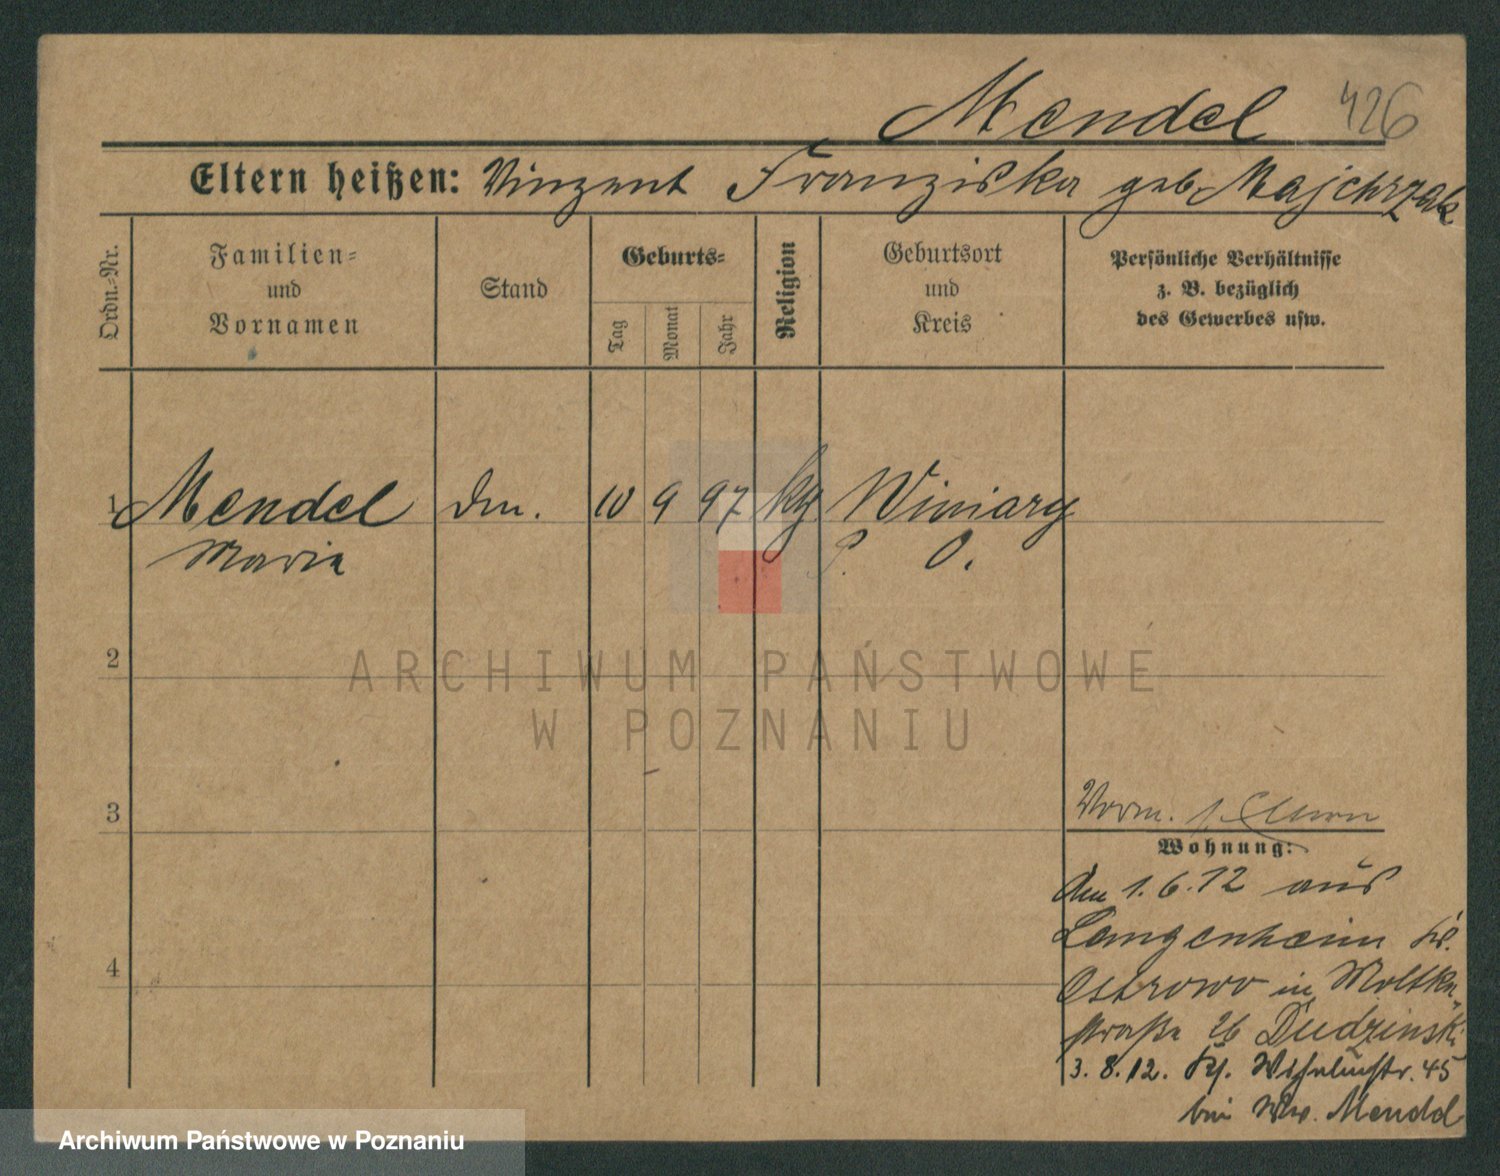 Mendel 426
Eltern heißen: Vinzent Franziska geb. Majchrzak
Ordn.-Nr.
Familien-
und
Vornamen
Stand
Geburts-
Tag
Monat
Jahr
Religion
Geburtsort
und
Kreis
Persönliche Verhältnisse
z. B. bezüglich
des Gewerbes usw.
1 Mendel Dm. 10 9 97 kg Winiary
Maria P. O.
ARCHIWUM PAŃSTWOWE
W POZNANIU
2
3
4
Vorm.
Wohnung:
Am 1.6.12 aus
Langenheim Kr.
Ostrowo in Moltke-
straße 26 Dudzinski
3.8.12. 45
bei Ww. Mendel
Archiwum Państwowe w Poznaniu